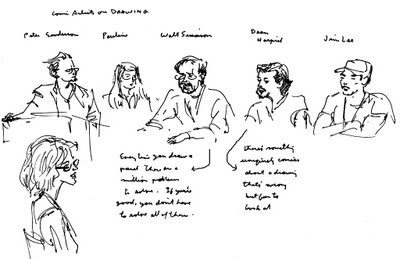 Comic Artists on DRAWING
Peter Sanderson
Pauline
Walt Simonson
Dean
Haspiel
Jim Lee
Every line you draw a
panel there are a
million problem
to solve. If you're
good, you don't have
to solve all of them.
there's something
uniquely comics
about a drawing
that's wrong
but fun to
look at